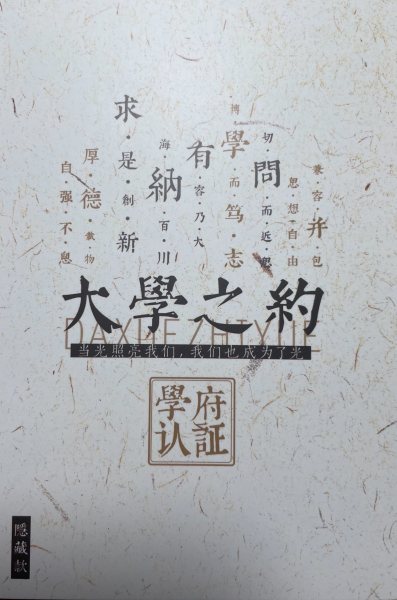 自·强·不·息
厚·德·載·物
求·是·創·新
海·納·百·川
有·容·乃·大
博·學·而·笃·志
切·問·而·近·思
思·想·自·由
兼·容·并·包
大學之約
DAXUE ZHIYUE
当光照亮我们，我们也成为了光
學府
认証
隱藏款